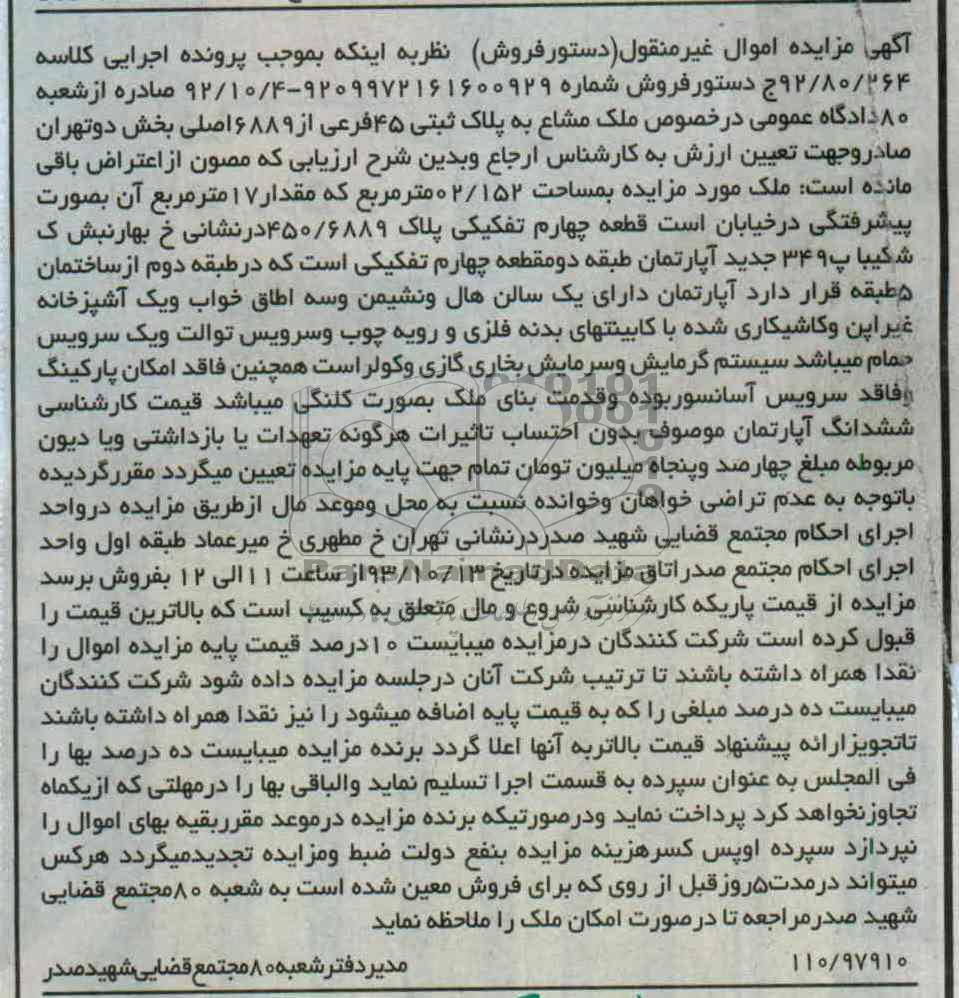 آگهی مزایده اموال غیرمنقول(دستورفروش) نظربه اینکه بموجب پرونده اجرایی کلاسه
۹۲/۸۰/۲۶۴ج دستورفروش شماره ۹۲۰۹۹۷۲۱۶۱۶۰۰۹۲۹-۹۲/۱۰/۴ صادره ازشعبه
۸۰دادگاه عمومی درخصوص ملک مشاع به پلاک ثبتی ۴۵فرعی از۶۸۸۹اصلی بخش دوتهران
صادروجهت تعیین ارزش به کارشناس ارجاع وبدین شرح ارزیابی که مصون ازاعتراض باقی
مانده است: ملک مورد مزایده بمساحت ۰۲/۱۵۲مترمربع که مقدار۱۷مترمربع آن بصورت
پیشرفتگی درخیابان است قطعه چهارم تفکیکی پلاک ۴۵۰/۶۸۸۹درنشانی خ بهارنبش ک
شکیبا پ۳۴۹ جدید آپارتمان طبقه دومقطعه چهارم تفکیکی است که درطبقه دوم ازساختمان
۵طبقه قرار دارد آپارتمان دارای یک سالن هال ونشیمن وسه اطاق خواب ویک آشپزخانه
غیراپن وکاشیکاری شده با کابینتهای بدنه فلزی و رویه چوب وسرویس توالت ویک سرویس
حمام میباشد سیستم گرمایش وسرمایش بخاری گازی وکولراست همچنین فاقد امکان پارکینگ
وفاقد سرویس آسانسوربوده وقدمت بنای ملک بصورت کلنگی میباشد قیمت کارشناسی
ششدانگ آپارتمان موصوف بدون احتساب تاثیرات هرگونه تعهدات یا بازداشتی ویا دیون
مربوطه مبلغ چهارصد وپنجاه میلیون تومان تمام جهت پایه مزایده تعیین میگردد مقررگردیده
باتوجه به عدم تراضی خواهان وخوانده نسبت به محل وموعد مال ازطریق مزایده درواحد
اجرای احکام مجتمع قضایی شهید صدردرنشانی تهران خ مطهری خ میرعماد طبقه اول واحد
اجرای احکام مجتمع صدراتاق مزایده درتاریخ ۹۳/۱۰/۱۳از ساعت ۱۱الی ۱۲ بفروش برسد
مزایده از قیمت پاریکه کارشناسی شروع و مال متعلق به کسیب است که بالاترین قیمت را
قبول کرده است شرکت کنندگان درمزایده میبایست ۱۰درصد قیمت پایه مزایده اموال را
نقدا همراه داشته باشند تا ترتیب شرکت آنان درجلسه مزایده داده شود شرکت کنندگان
میبایست ده درصد مبلغی را که به قیمت پایه اضافه میشود را نیز نقدا همراه داشته باشند
تاتجویزارائه پیشنهاد قیمت بالاتربه آنها اعلا گردد برنده مزایده میبایست ده درصد بها را
فی المجلس به عنوان سپرده به قسمت اجرا تسلیم نماید والباقی بها را درمهلتی که ازیکماه
تجاوزنخواهد کرد پرداخت نماید ودرصورتیکه برنده مزایده درموعد مقرربقیه بهای اموال را
نپردازد سپرده اوپس کسرهزینه مزایده بنفع دولت ضبط ومزایده تجدیدمیگردد هرکس
میتواند درمدت۵روزقبل از روی که برای فروش معین شده است به شعبه ۸۰مجتمع قضایی
شهید صدرمراجعه تا درصورت امکان ملک را ملاحظه نماید
۱۱۰/۹۷۹۱۰ مدیردفترشعبه۸۰مجتمع قضایی شهیدصدر